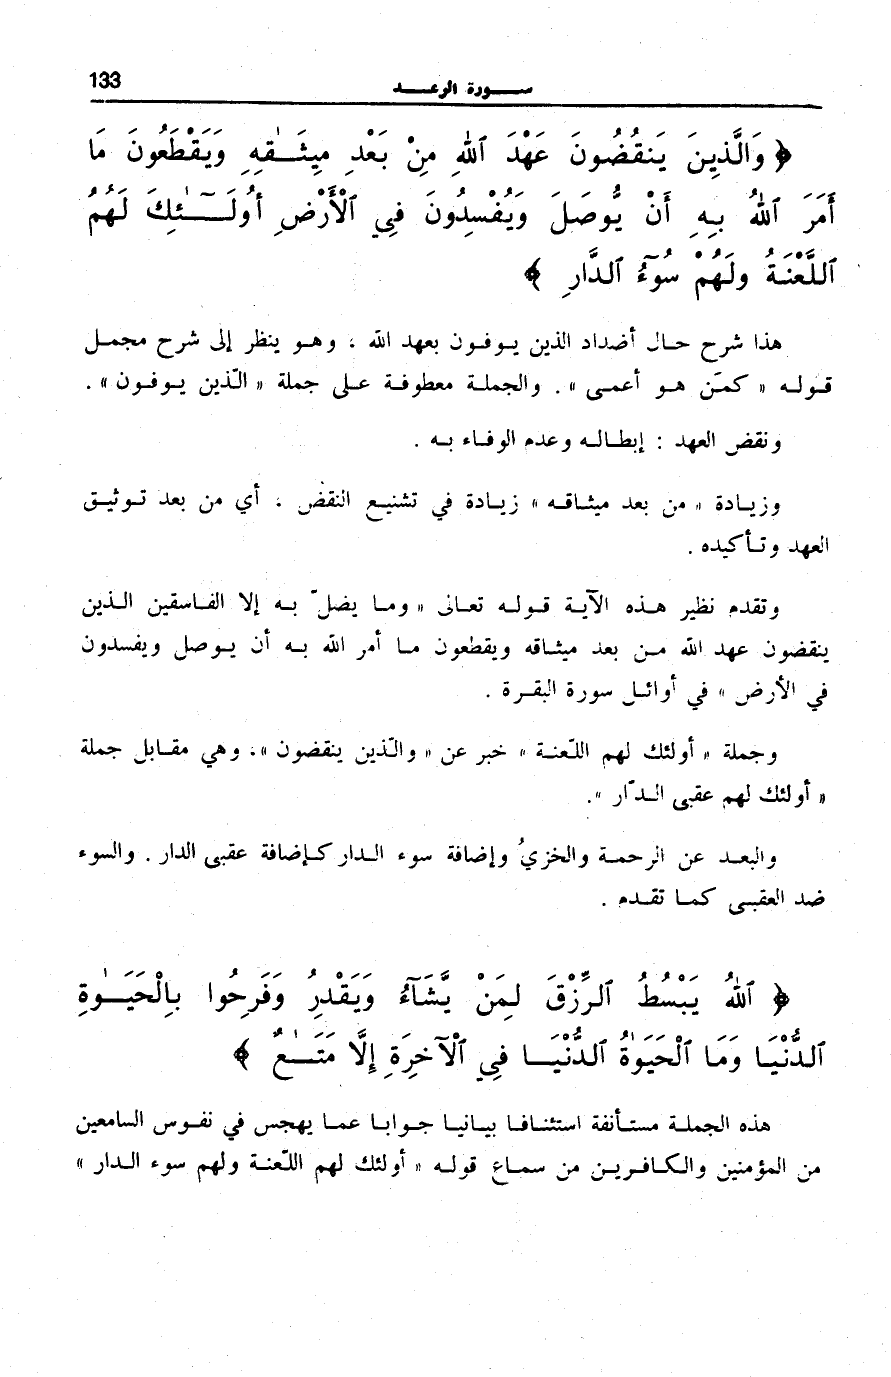 133
ســـورة الرعـــد
﴿ وَالَّذِينَ يَنقُضُونَ عَهْدَ ٱللَّهِ مِنْ بَعْدِ مِيثَـٰقِهِ وَيَقْطَعُونَ مَا
أَمَرَ ٱللَّهُ بِهِ أَنْ يُّوصَلَ وَيُفْسِدُونَ فِي ٱلْأَرْضِ أُولَـٰٓئِكَ لَهُمُ
ٱللَّعْنَةُ ولَهُمْ سُوٓءُ ٱلدَّارِ ﴾
هذا شرح حال أضداد الذين يوفون بعهد الله ، وهو ينظر إلى شرح مجمل
قوله « كمَن هو أعمى » . والجملة معطوفة على جملة « الّذين يوفون » .
ونقض العهد : إبطاله وعدم الوفاء به .
وزيادة « من بعد ميثاقه » زيادة في تشنيع النقض ، أي من بعد توثيق
العهد وتأكيده .
وتقدم نظير هذه الآية قوله تعالى « وما يضلّ به إلا الفاسقين الذين
ينقضون عهد الله من بعد ميثاقه ويقطعون ما أمر الله به أن يوصل ويفسدون
في الأرض » في أوائل سورة البقرة .
وجملة « أولئك لهم اللّعنة » خبر عن « والّذين ينقضون »، وهي مقابل جملة
« أولئك لهم عقبى الدّار ».
والبعد عن الرحمة والخزيُ وإضافة سوء الدار كإضافة عقبى الدار . والسوء
ضد العقبى كما تقدم .
﴿ ٱللَّهُ يَبْسُطُ ٱلرِّزْقَ لِمَنْ يَّشَآءُ وَيَقْدِرُ وَفَرِحُوا بِالْحَيَـٰوةِ
ٱلدُّنْيَا وَمَا ٱلْحَيَوٰةُ ٱلدُّنْيَـا فِي ٱلْآخِرَةِ إِلَّا مَتَـٰعٌ ﴾
هذه الجملة مستأنفة استئنافا بيانيا جوابا عما يهجس في نفوس السامعين
من المؤمنين والكافرين من سماع قوله « أولئك لهم اللّعنة ولهم سوء الدار »